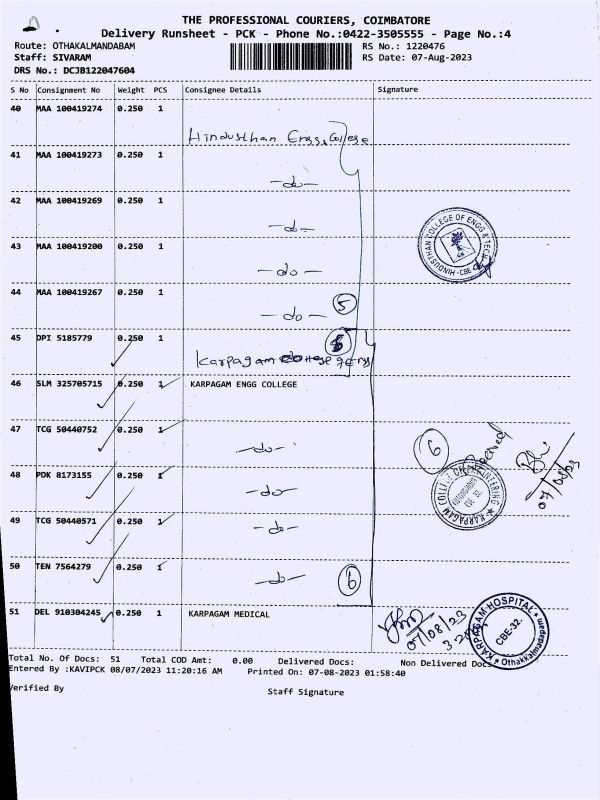 THE PROFESSIONAL COURIERS, COIMBATORE
Delivery Runsheet - PCK - Phone No.:0422-3505555 - Page No.:4
Route: OTHAKALMANDABAM RS No.: 1220476
Staff: SIVARAM RS Date: 07-Aug-2023
DRS No.: DCJB122047604
S No Consignment No Weight PCS Consignee Details Signature
40 MAA 100419274 0.250 1
Hindusthan Engg. College
41 MAA 100419273 0.250 1
-do-
42 MAA 100419269 0.250 1
-do-
HINDUSTHAN COLLEGE OF ENGG & TECH CBE
43 MAA 100419200 0.250 1
-do-
44 MAA 100419267 0.250 1
5
-do-
45 DPI 5185779 0.250 1
Karpagam College of Engg
46 SLM 325705715 0.250 1 KARPAGAM ENGG COLLEGE
47 TCG 50440752 0.250 1
-do-
6 Received
07/08/23
48 PDK 8173155 0.250 1
-do-
KARPAGAM COLLEGE OF ENGINEERING CBE-32.
49 TCG 50440571 0.250 1
-do-
50 TEN 7564279 0.250 1
-do- 6
51 DEL 910304245 0.250 1 KARPAGAM MEDICAL
07/08/23
KARPAGAM HOSPITAL CBE-32. Othakkalmandapam
Total No. Of Docs: 51 Total COD Amt: 0.00 Delivered Docs: Non Delivered Docs
Entered By :KAVIPCK 08/07/2023 11:20:16 AM Printed On: 07-08-2023 01:58:40
Verified By Staff Signature